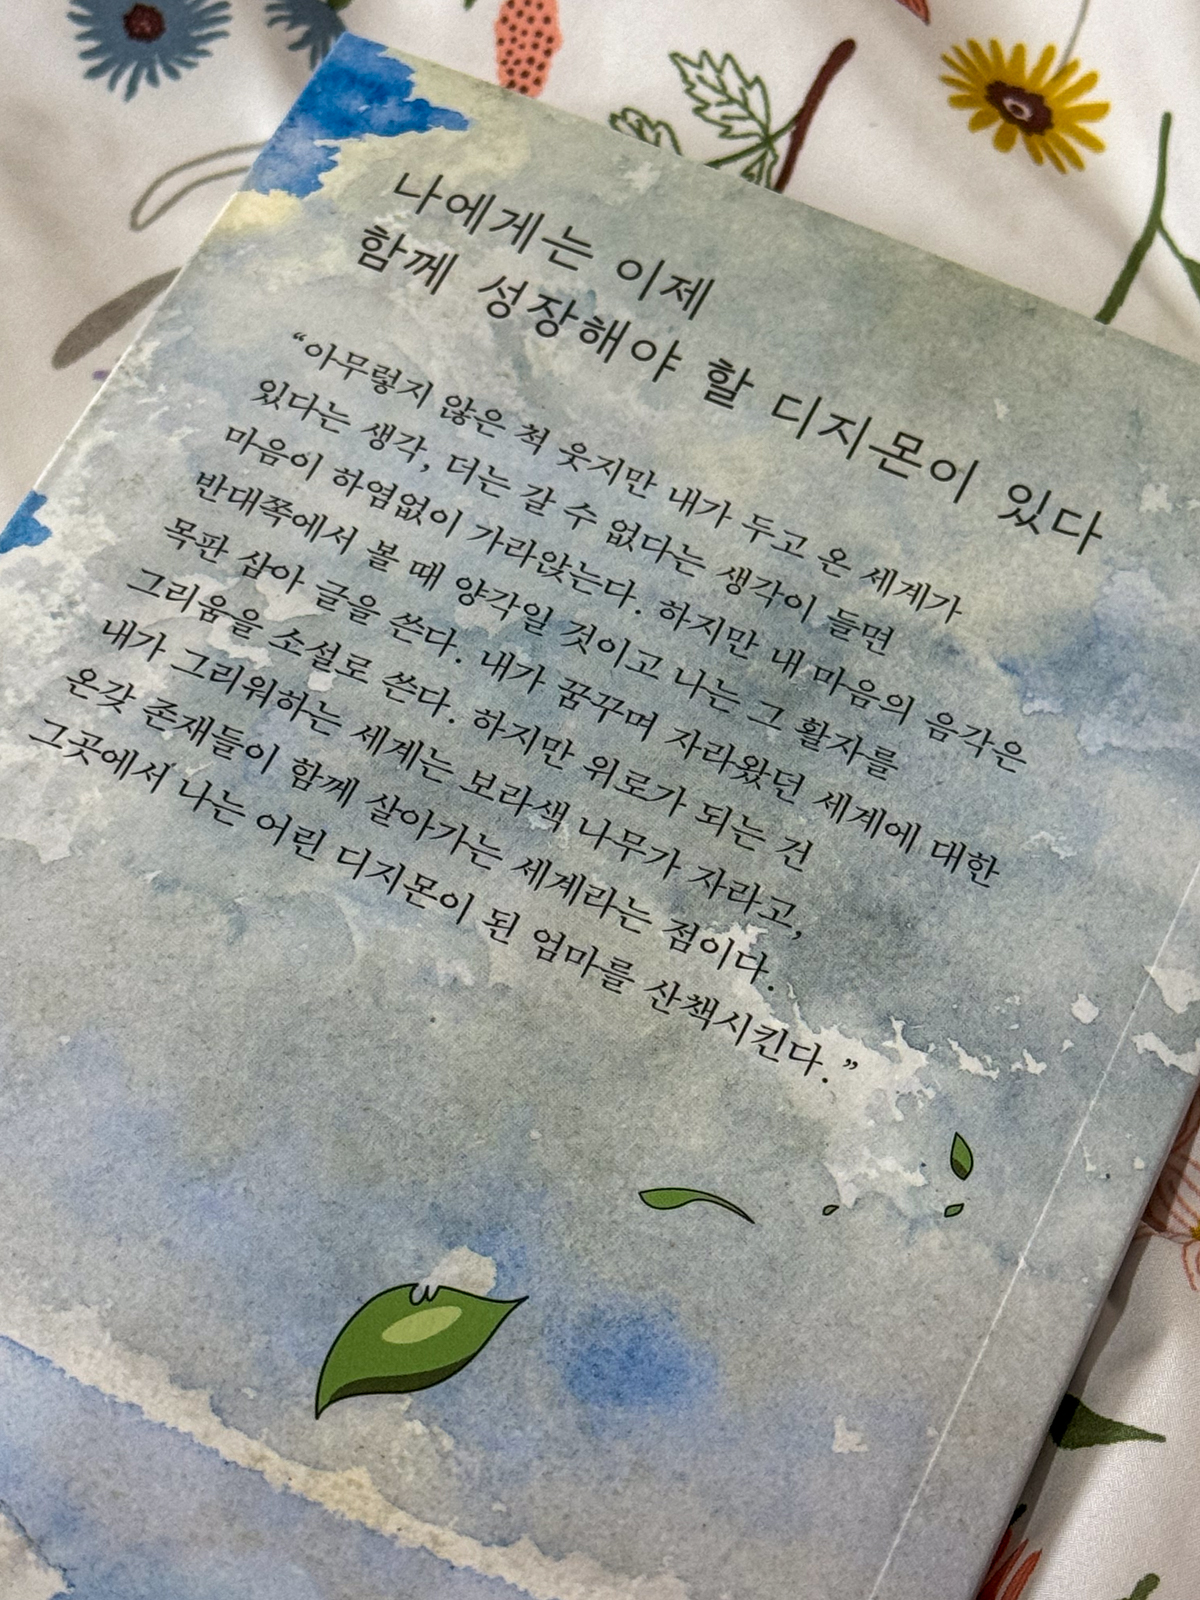 나에게는 이제
함께 성장해야 할 디지몬이 있다
“아무렇지 않은 척 웃지만 내가 두고 온 세계가
있다는 생각, 더는 갈 수 없다는 생각이 들면
마음이 하염없이 가라앉는다. 하지만 내 마음의 음각은
반대쪽에서 볼 때 양각일 것이고 나는 그 활자를
목판 삼아 글을 쓴다. 내가 꿈꾸며 자라왔던 세계에 대한
그리움을 소설로 쓴다. 하지만 위로가 되는 건
내가 그리워하는 세계는 보라색 나무가 자라고,
온갖 존재들이 함께 살아가는 세계라는 점이다.
그곳에서 나는 어린 디지몬이 된 엄마를 산책시킨다.”